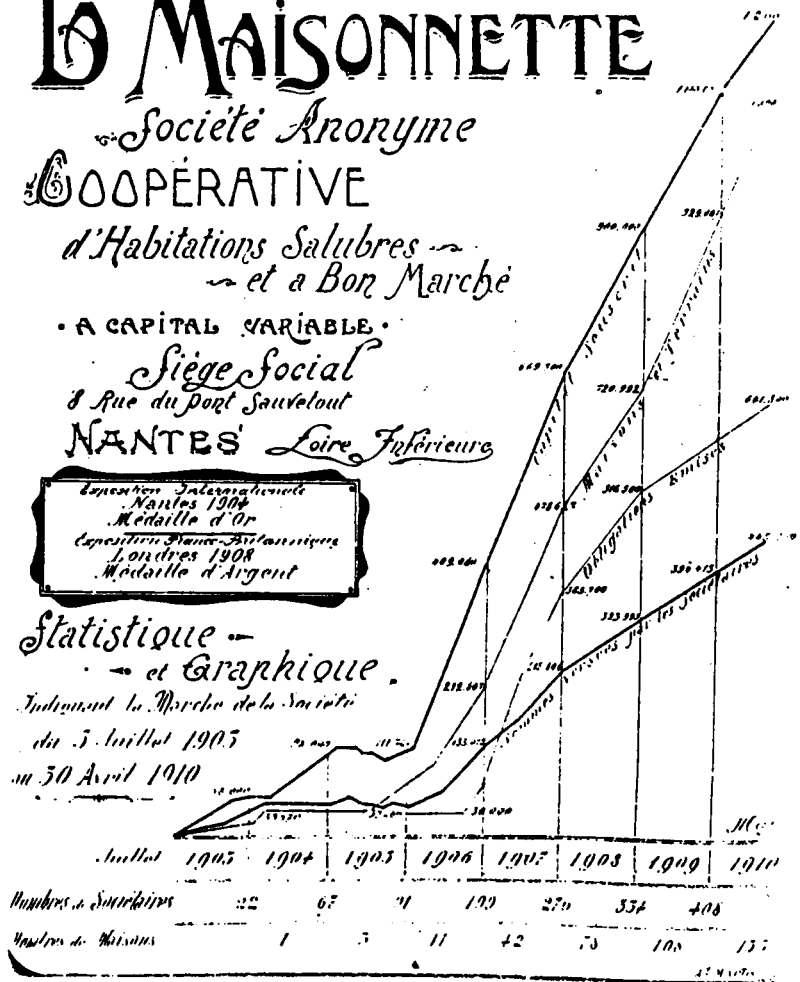 La Maisonnette
Société Anonyme
Coopérative
d'Habitations Salubres
et a Bon Marché
• A CAPITAL VARIABLE •
Siége Social
8 Rue du Pont Sauvetout
NANTES Loire Inférieure
Exposition Internationale
Nantes 1904
Médaille d'Or
Exposition Franco-Britannique
Londres 1908
Médaille d'Argent
Statistique
et Graphique
Indiquant la Marche de la Société
du 5 Juillet 1903
au 30 Avril 1910
900.000
929.001
669.700
Capital Souscrit
720.992
Maisons et Terrains
601.500
506.500
Obligations Emises
409.000
365.700
390.415
323.995
Sommes Versées par les Sociétaires
212.607
30.000
Juillet 1903 1904 1905 1906 1907 1908 1909 1910
Nombres de Sociétaires 22 67 91 199 270 334 408
Nombres de Maisons 1 5 11 42 78 108